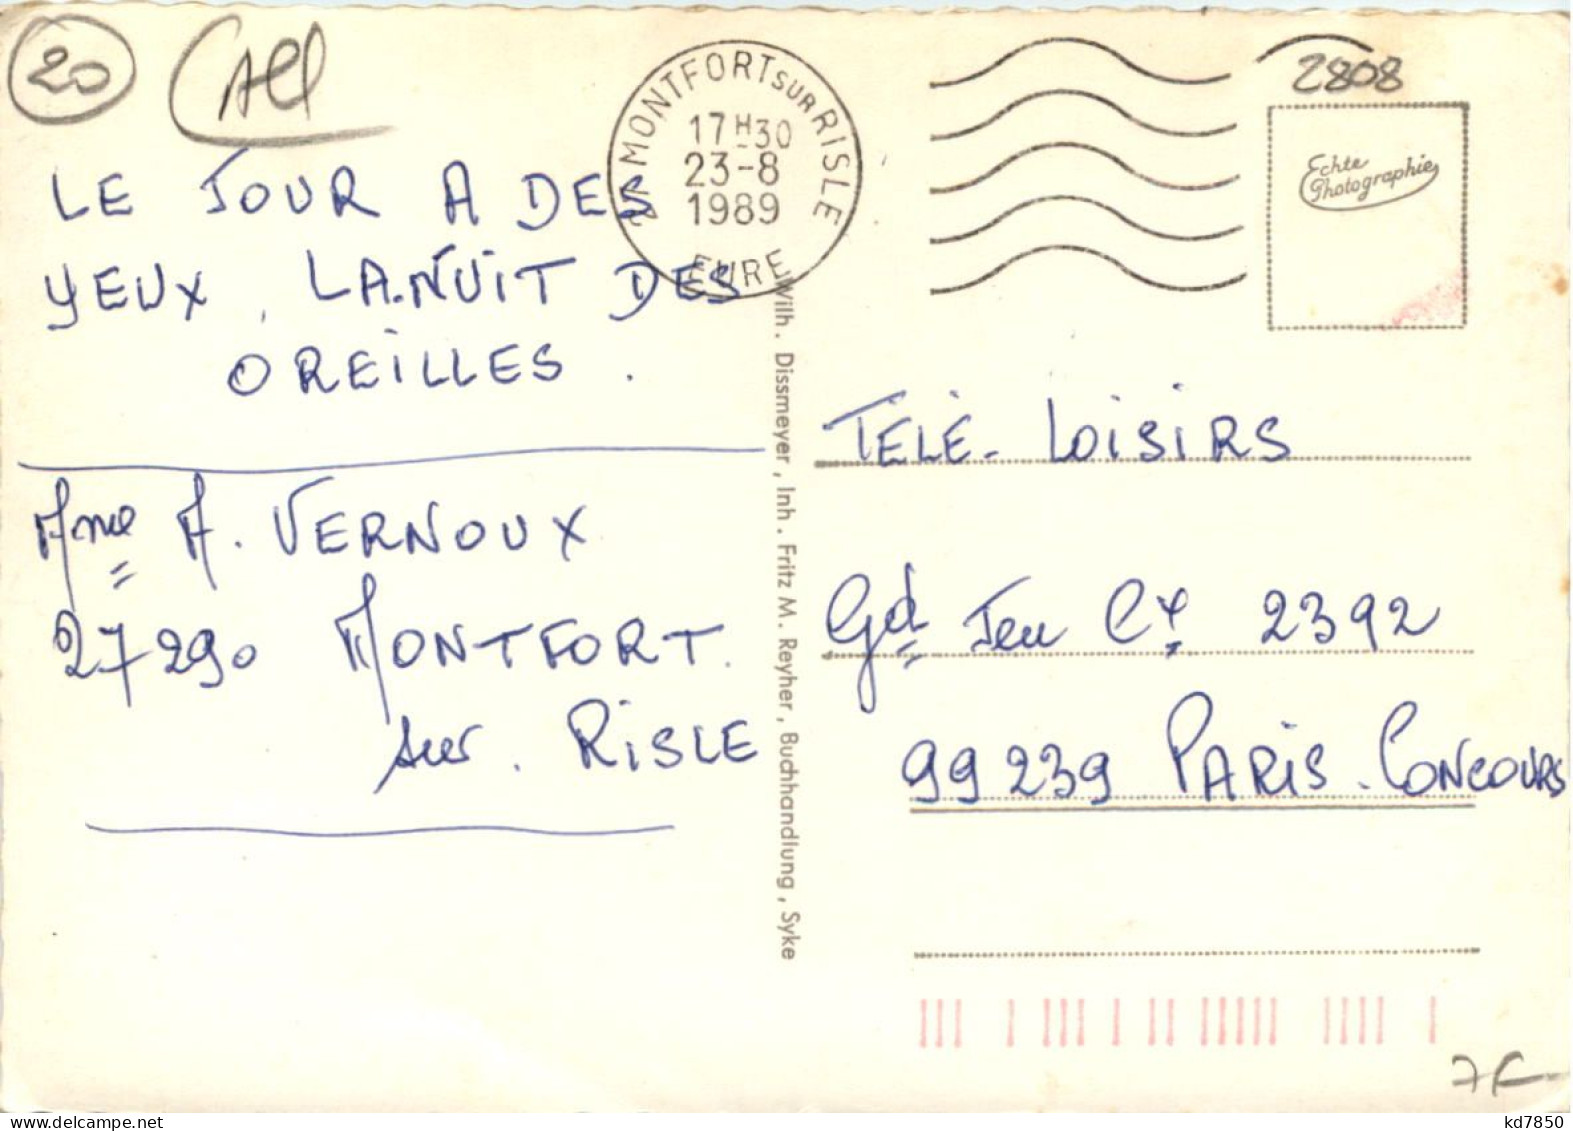 20
All
2808
27 MONTFORT SUR RISLE
17H30
23-8
1989
EURE
Echte
Photographie
LE JOUR A DES
YEUX, LA NUIT DES
OREILLES.
Mme A. VERNOUX
27290 MONTFORT.
sur. RISLE
Wilh. Dissmeyer, Inh. Fritz M. Reyher, Buchhandlung, Syke
TÉLÉ-LOISIRS
Gd Jeu Cx 2392
99239 PARIS-CONCOURS
7F
kd7850